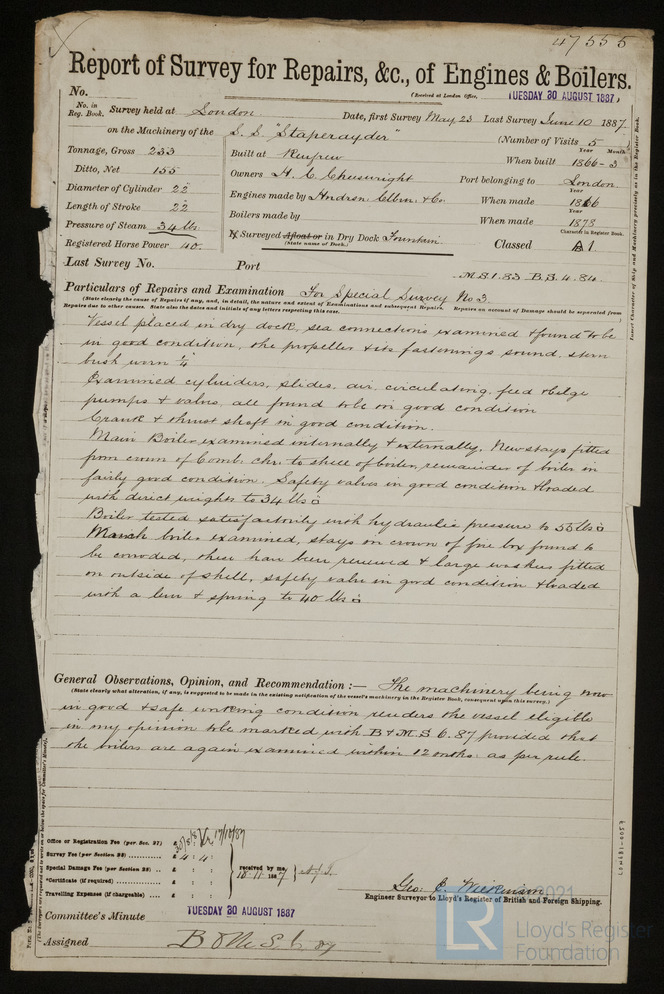 47555
Report of Survey for Repairs, &c., of Engines & Boilers.
(Received at London Office, TUESDAY 30 AUGUST 1887)
No.
No. in Reg. Book. Survey held at London Date, first Survey May 23 Last Survey June 10 1887
on the Machinery of the S.S. "Staperayder" (Number of Visits 5)
Tonnage, Gross 233 Built at Renfrew When built Year 1866 Month 3
Ditto, Net 155 Owners H. C. Cheeswright Port belonging to London
Diameter of Cylinder 22" Engines made by & Co. When made Year 1866
Length of Stroke 22" Boilers made by When made Year 1878
Pressure of Steam 34 lbs Surveyed Afloat or in Dry Dock Fountain Classed Character in Register Book. A1
(State name of Dock.)
Registered Horse Power 40.
Last Survey No. Port M.S.1.83 B.S.4.84
Particulars of Repairs and Examination For Special Survey No 3.
(State clearly the cause of Repairs if any, and, in detail, the nature and extent of Examinations and subsequent Repairs. Repairs on account of Damage should be separated from
Repairs due to other causes. State also the dates and initials of any letters respecting this case.
Vessel placed in dry dock, sea connections examined & found to be
in good condition, the propeller & its fastenings sound, stern
bush worn 1/4"
Examined cylinders, slides, air, circulating, feed & bilge
pumps & valves, all found to be in good condition
Crank & thrust shaft in good condition.
Main Boiler examined internally & externally. New stays fitted
from crown of Comb. chr. to shell of boiler, remainder of boiler in
fairly good condition. Safety valves in good condition & loaded
with direct weights to 34 lbs □
Boiler tested satisfactorily with hydraulic pressure to 55 lbs □
boiler examined, stays in crown of fire box found to
be corroded, these have been renewed & large washers fitted
on outside of shell, safety valve in good condition & loaded
with a lever & spring to 40 lbs □
General Observations, Opinion, and Recommendation :— The machinery being now
(State clearly what alteration, if any, is suggested to be made in the existing notification of the vessel's machinery in the Register Book, consequent upon this survey.)
in good & safe working condition renders the vessel eligible
in my opinion to be marked with B & M S 6.87 provided that
the boilers are again examined within 12 mths. as per rule.
Office or Registration Fee (per Sec. 27) £
Survey Fee (per Section 28) £ 4 : 4 :
Special Damage Fee (per Section 28) £ : : received by me, 18.11.1887
*Certificate (if required) £ : :
Travelling Expenses (if chargeable) £ : :
Geo. E. Wilkinson
Engineer Surveyor to Lloyd's Register of British and Foreign Shipping.
Committee's Minute TUESDAY 30 AUGUST 1887
Assigned B & M S 6.87
LR
2021
Lloyd's Register
Foundation
Insert Character of Ship and Machinery precisely as in the Register Book.